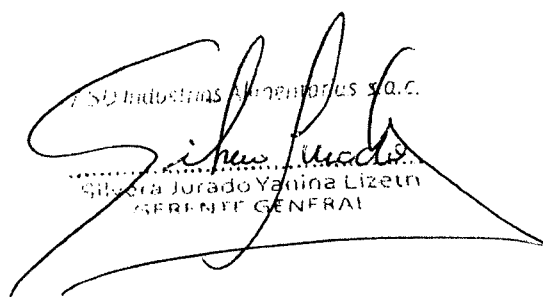 Industrias Alimentarias s.a.c.
Silvera Jurado Yanina Lizeth
GERENTE GENERAL